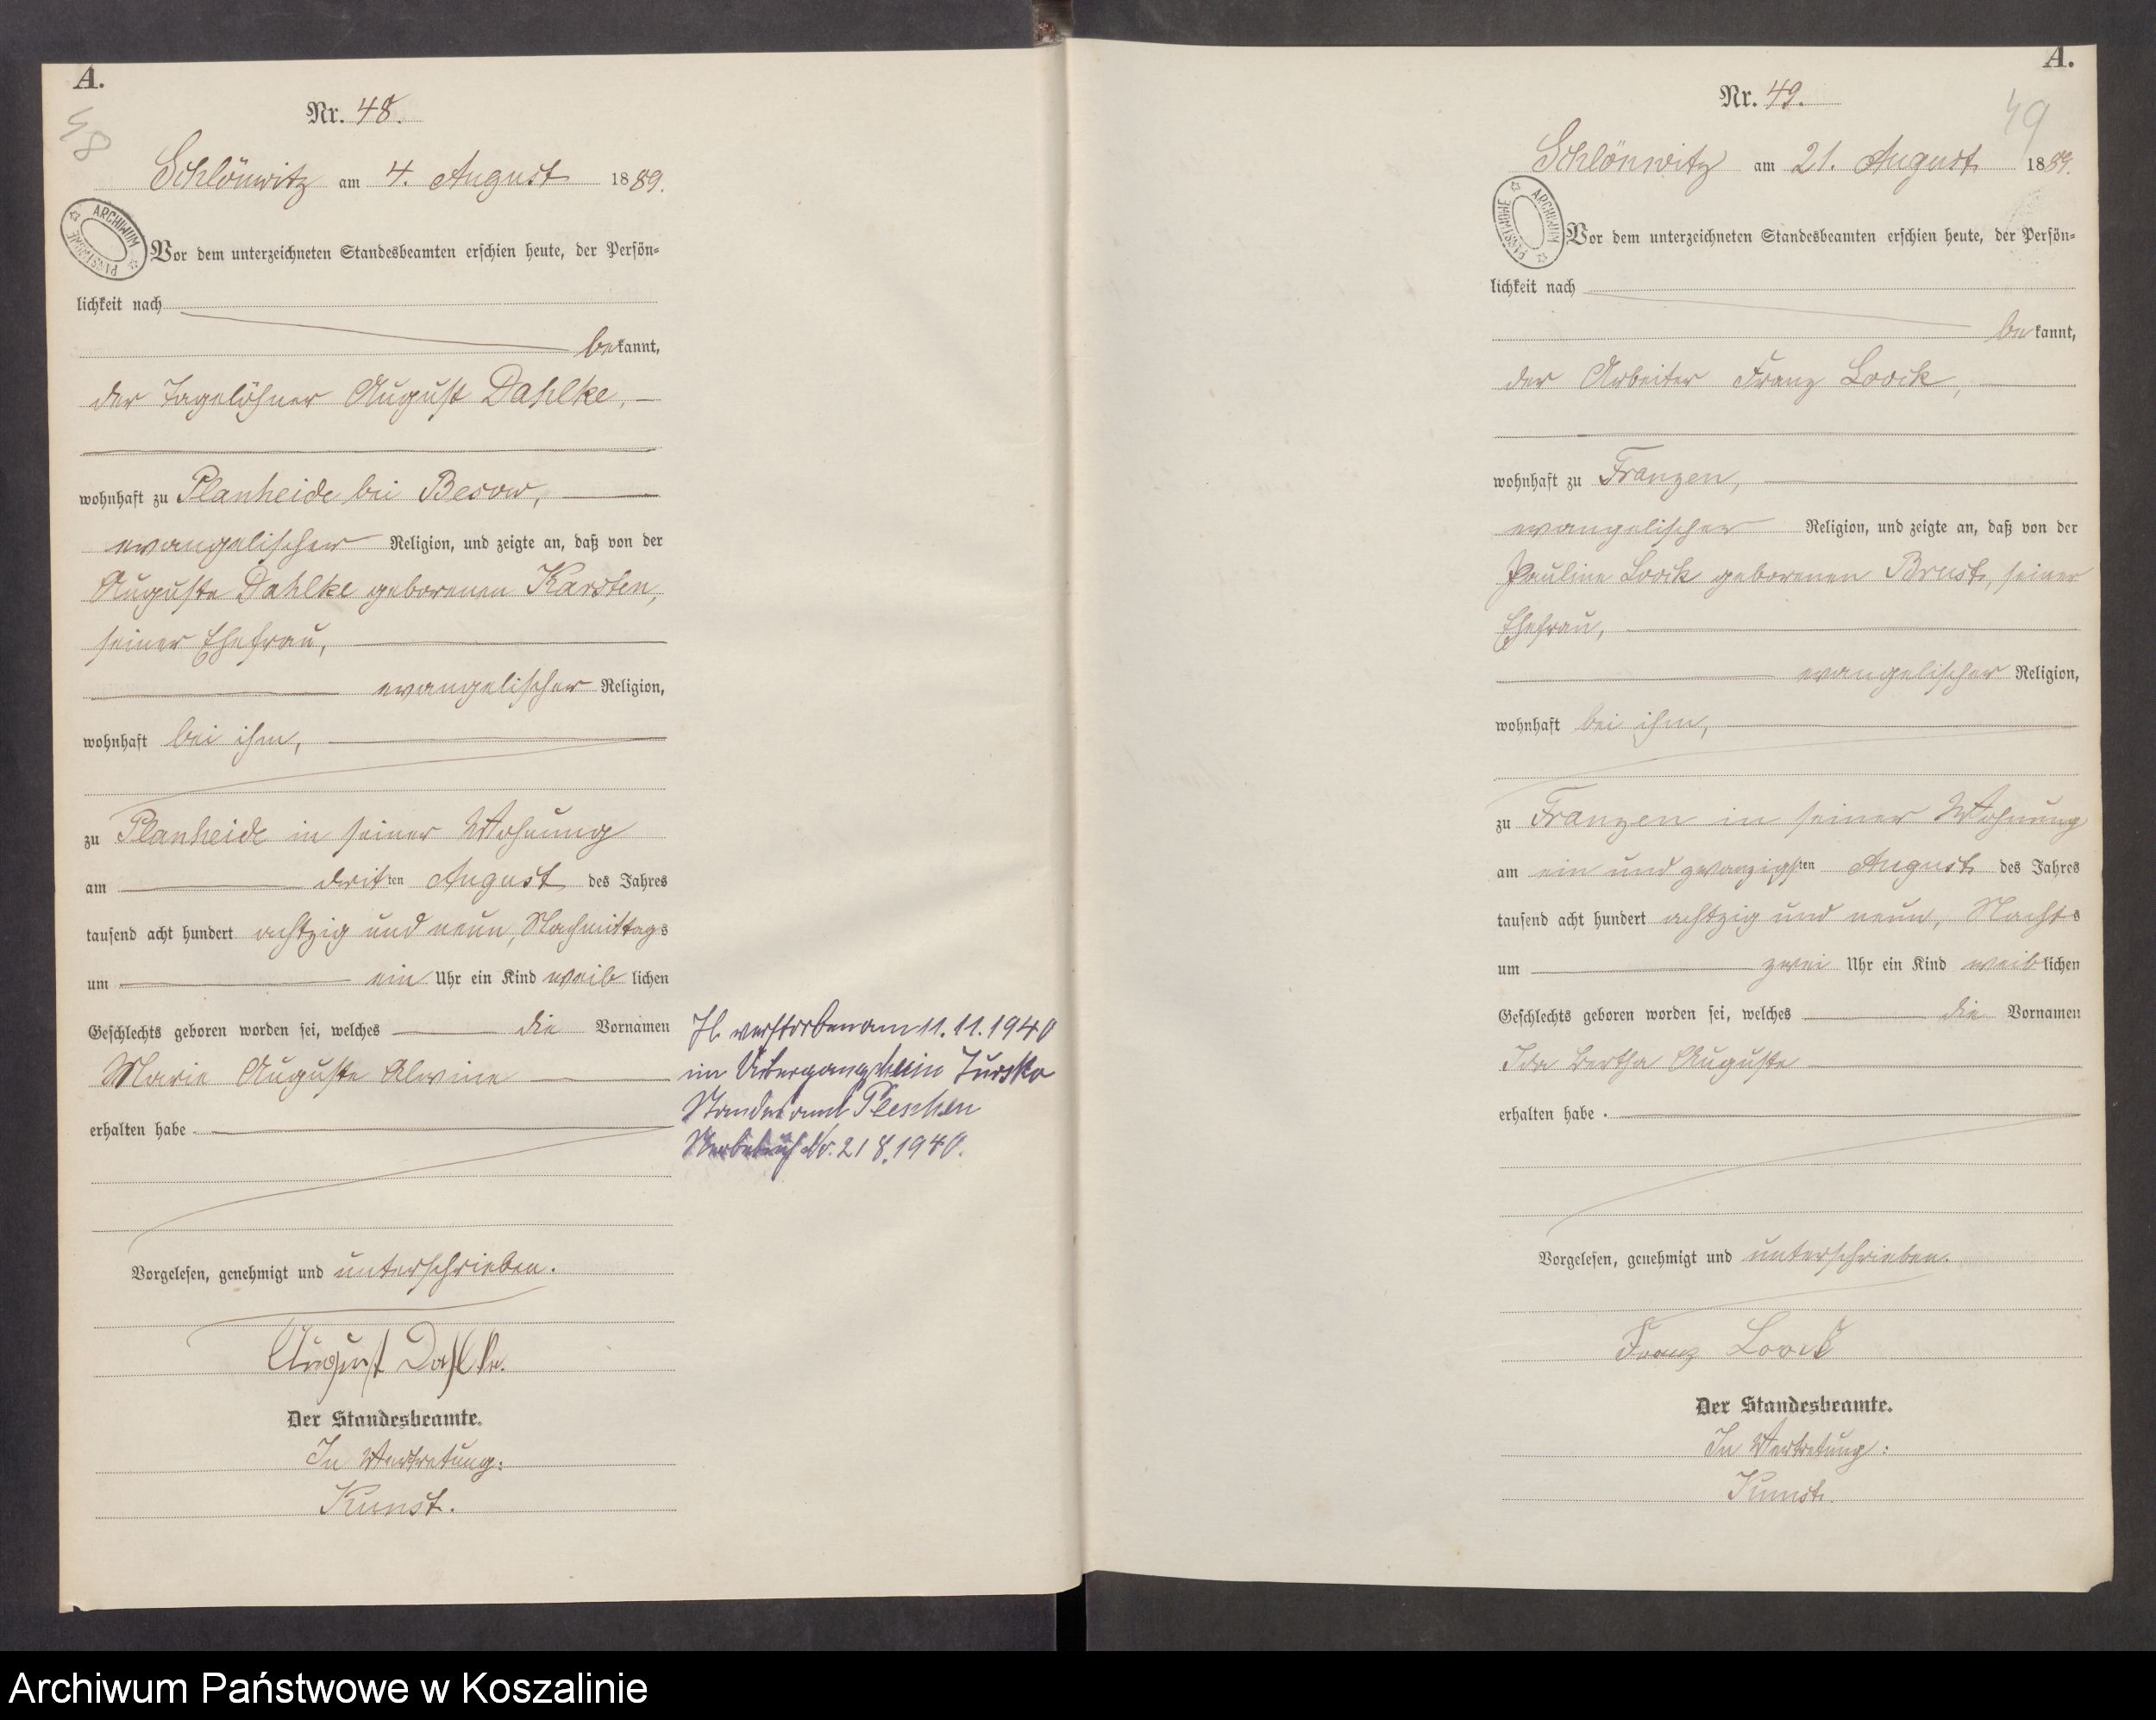 A.
48
Nr. 48.
Schlönwitz am 4. August 1889.
ARCHIWUM PAŃSTWOWE
Vor dem unterzeichneten Standesbeamten erschien heute, der Persön=
lichkeit nach
bekannt,
der Tagelöhner August Dahlke,
wohnhaft zu Planheide bei Besow,
evangelischer Religion, und zeigte an, daß von der
Auguste Dahlke geborenen Karsten,
seiner Ehefrau,
evangelischer Religion,
wohnhaft bei ihm,
zu Planheide in seiner Wohnung
am dritten August des Jahres
tausend acht hundert achtzig und neun, Nachmittags
um ein Uhr ein Kind weiblichen
Geschlechts geboren worden sei, welches die Vornamen
Marie Auguste Alwine
erhalten habe
Vorgelesen, genehmigt und unterschrieben.
August Dahlke.
Der Standesbeamte.
In Vertretung:
Kunst.
verstorben am 11.11.1940
im Übergangsheim Tursko
Standesamt Pleschen
Nr. 218.1940.
A.
49
Nr. 49.
Schlönwitz am 21. August 1889.
ARCHIWUM PAŃSTWOWE
Vor dem unterzeichneten Standesbeamten erschien heute, der Persön=
lichkeit nach
bekannt,
der Arbeiter Franz Loock,
wohnhaft zu Franzen,
evangelischer Religion, und zeigte an, daß von der
Pauline Loock geborenen Brust, seiner
Ehefrau,
evangelischer Religion,
wohnhaft bei ihm,
zu Franzen in seiner Wohnung
am ein und zwanzigsten August des Jahres
tausend acht hundert achtzig und neun, Nachts
um zwei Uhr ein Kind weiblichen
Geschlechts geboren worden sei, welches die Vornamen
Ida Bertha Auguste
erhalten habe.
Vorgelesen, genehmigt und unterschrieben.
Franz Loock
Der Standesbeamte.
In Vertretung:
Kunst.
Archiwum Państwowe w Koszalinie